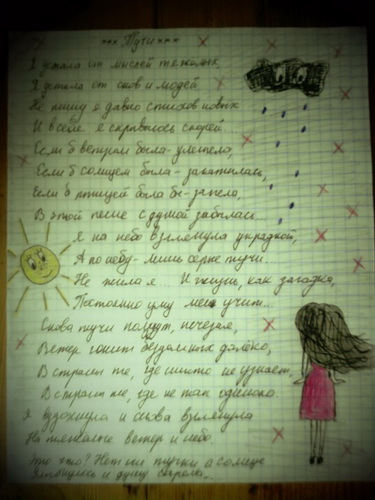 *** Тучи ***
Я устала от мыслей тяжелых,
Я устала от снов и людей.
Не пишу я давно стихов новых
И в себе я скрываюсь скорей...
Если б ветром была - улетела,
Если б солнцем была - закатилась,
Если б птицей была бы - запела,
В этой песне с душой забылась.
Я на небо взглянула украдкой,
А по небу - лишь серые тучи.
Не жила я... И жизнь, как загадка,
Постоянно уму меня учит...
Снова тучи ползут, исчезая,
Ветер гонит бездомных далёко,
В страны те, где никто не узнает,
В страны те, где не так одиноко.
Я вздохнула и снова взглянула
На ветер и небо.
Это что? Нет ни тучки а солнце
и душу согрело...